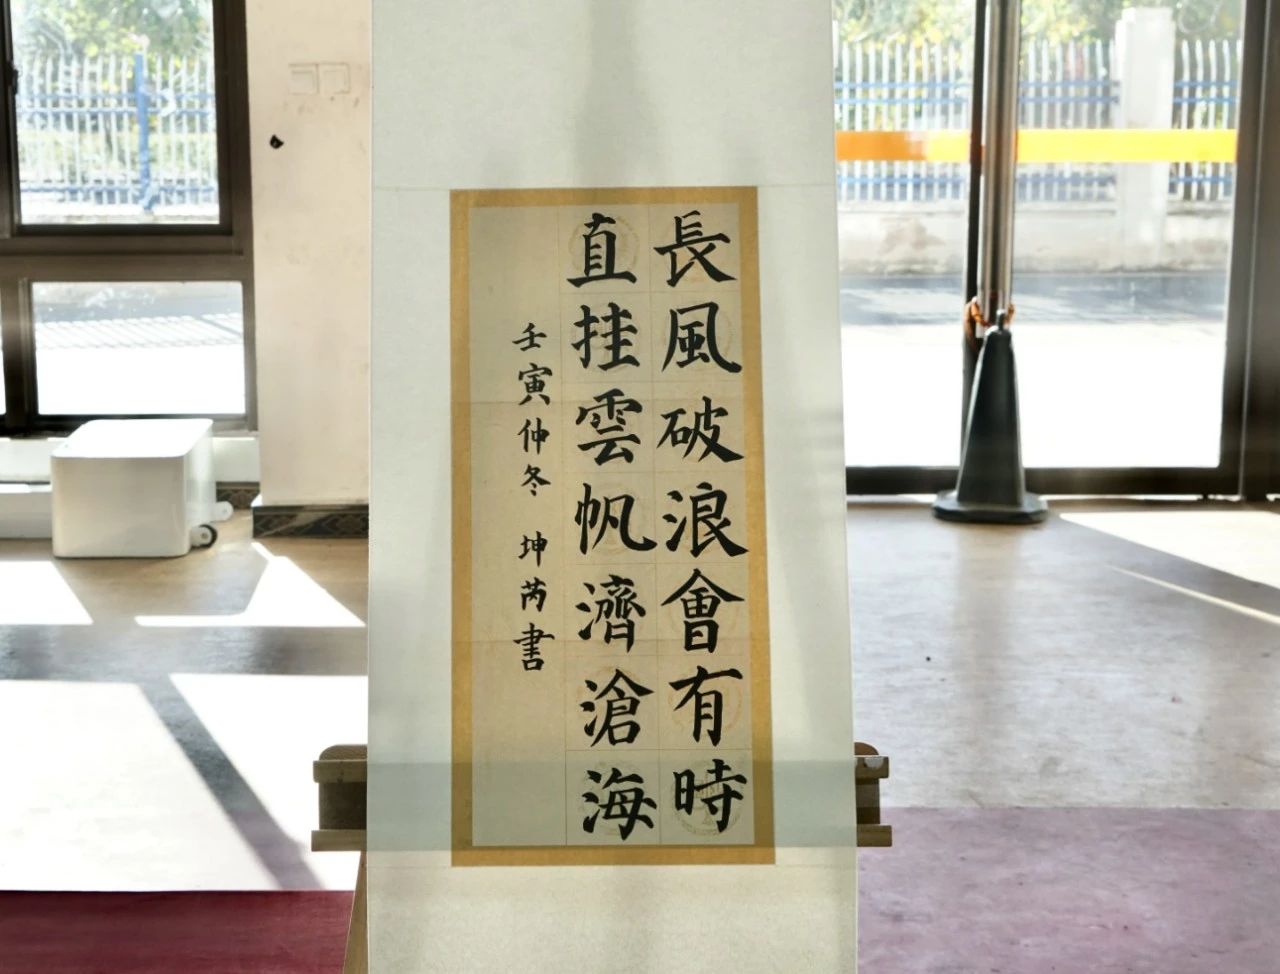 長風破浪會有時
直挂雲帆濟滄海
壬寅仲冬 坤芮書